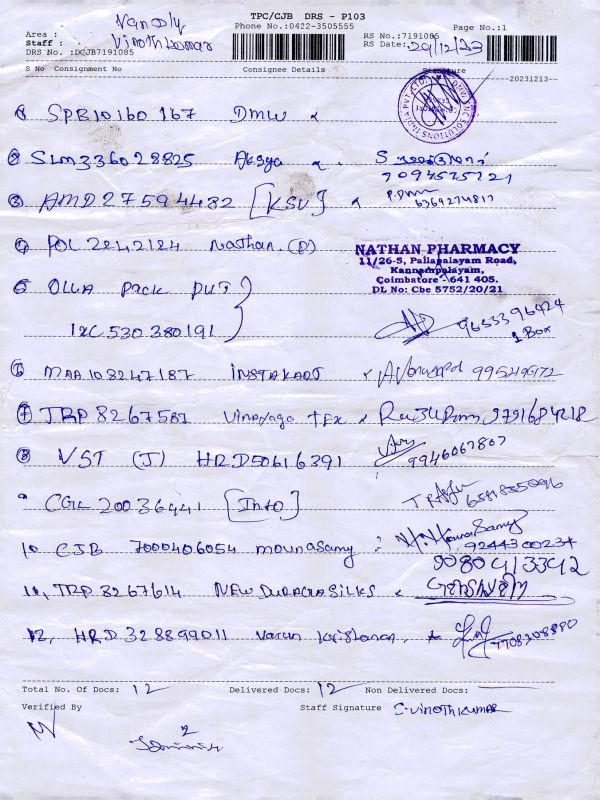 TPC/CJB DRS - P103
Vandly
Phone No.:0422-3505555
Page No.:1
Area :
RS No.:7191085
Staff : Vinothkumar
RS Date: 29/12/23
DRS No. :DCJB7191085
S No Consignment No Consignee Details Signature
--20231213--
1 SPB10160167 DMW
2 SLM336028825 Aksya
7094575721
3 AMD27594482 [KSV]
6369274817
4 POL2242124 Nathan (P)
NATHAN PHARMACY
11/26-5, Pallapalayam Road,
Kannampalayam,
Coimbatore - 641 405.
DL No: Cbe 5752/20/21
5 OLLA PACK PVT
IXC 530380191
9653396424
1 Box
6 MAA108247187 INSTAKART
7 TRP 8267587 Vinayaga TEX 9791684218
8 VST (J) HRD50616391
9946067807
9 CGL 20036441 [Into]
10 CJB 7000406054 Mounasamy
9244300234
9080413342
11, TRP 8267614 NEW DURACHA SILKS
12, HRD 328899011 Varun Kristanan
7708208880
Total No. Of Docs: 12 Delivered Docs: 12 Non Delivered Docs:
Verified By Staff Signature C. Vinothkumar